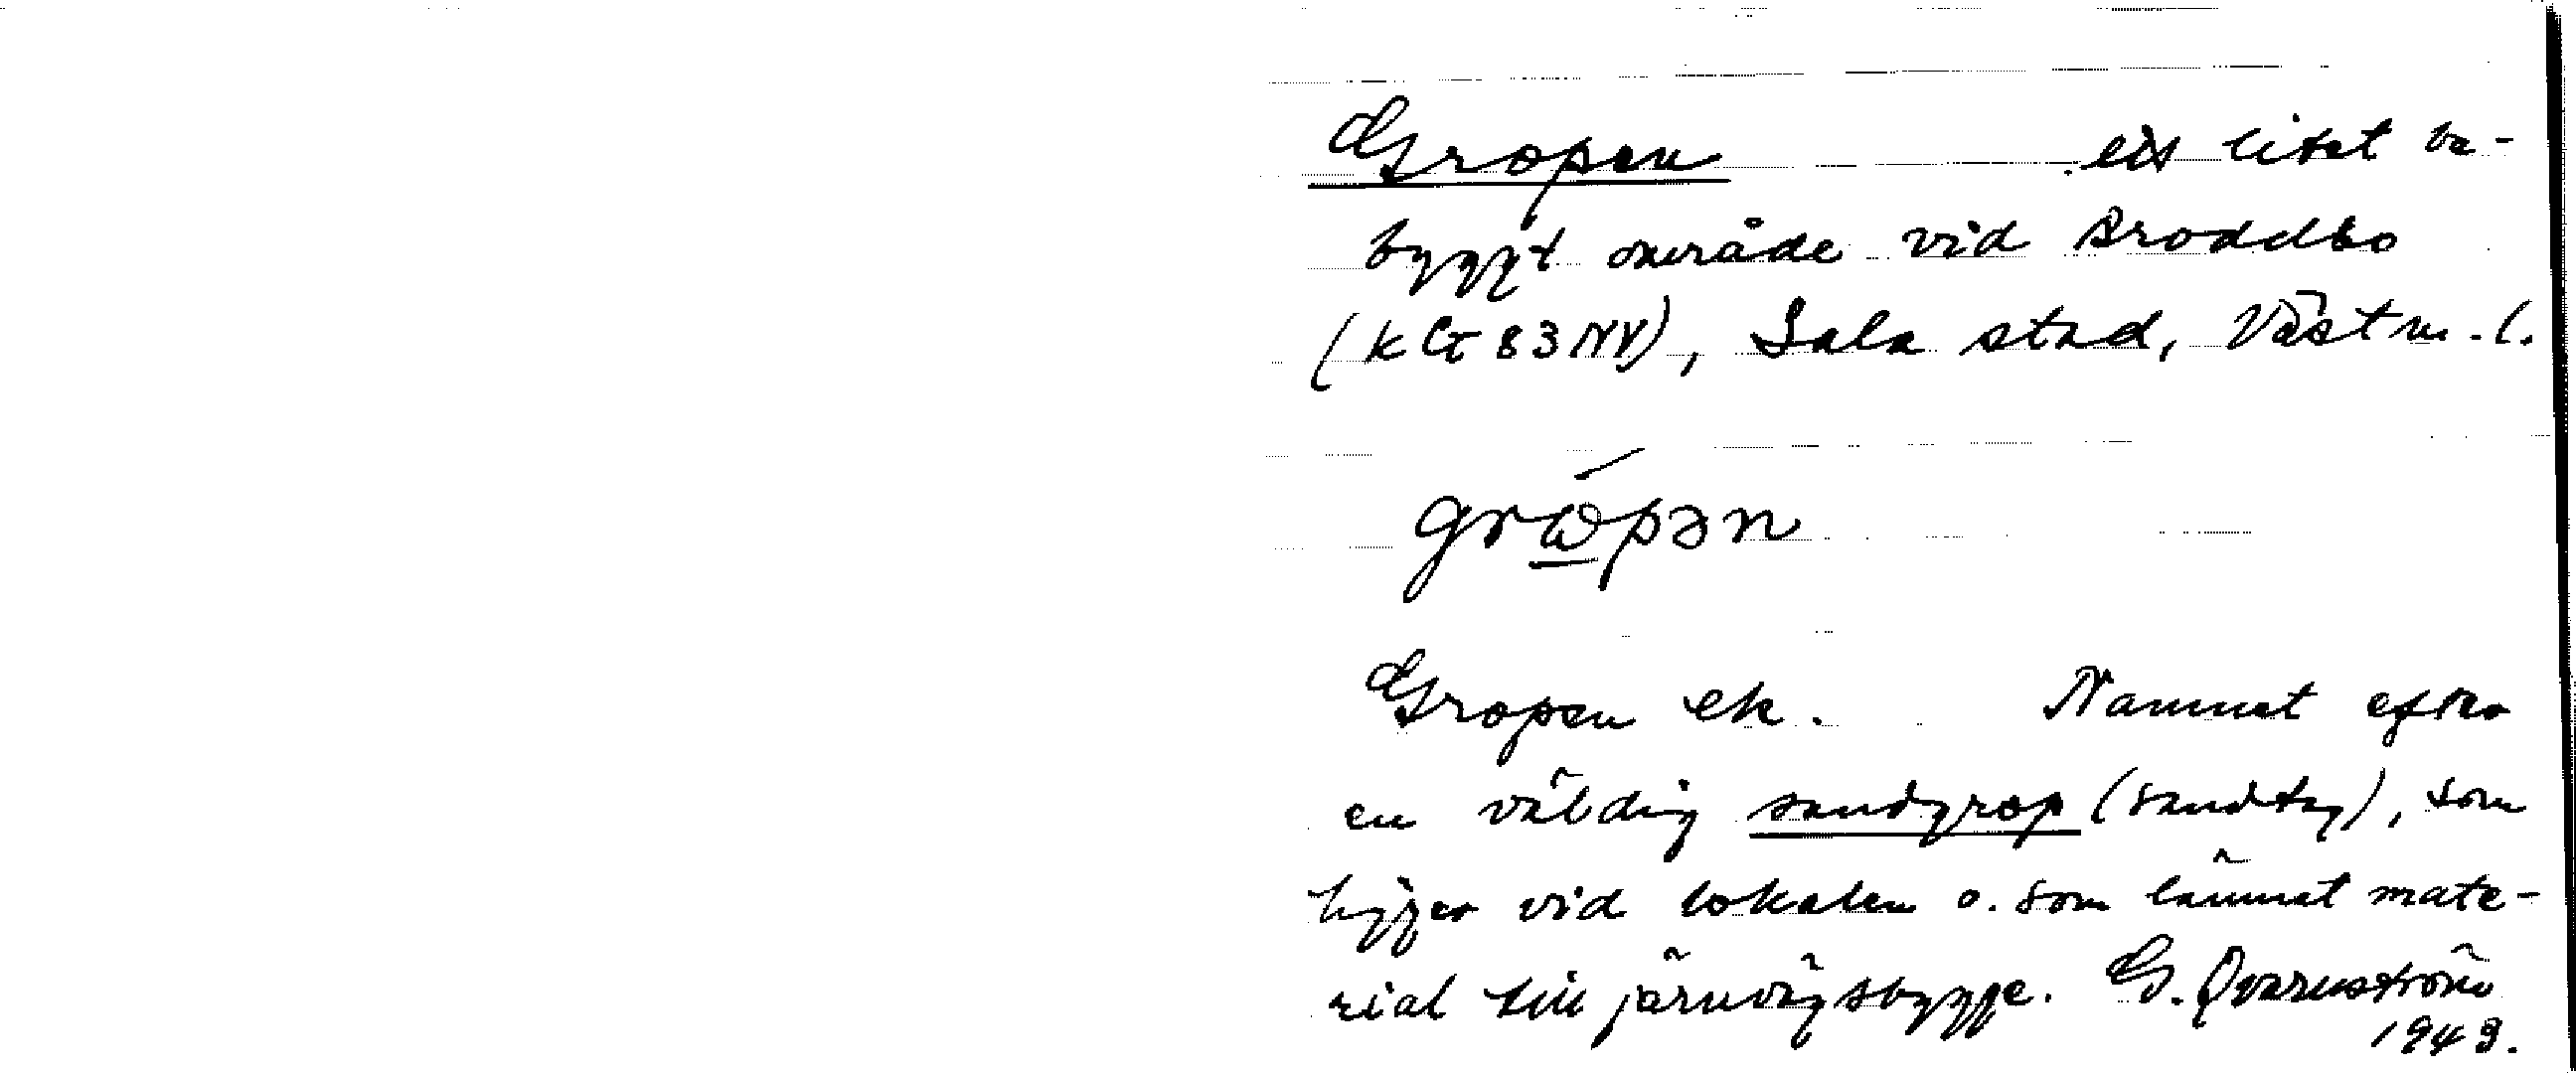 Gropen ett litet be-
byggt område vid Broddbo
(k G 83 NV), Sala stad, Västm. l.
grώ̲pən
Gropen ek. Namnet efter
en väldig sandgrop (sandtag), som
ligger vid lokalen o. som lämnat mate-
rial till järnvägsbygge. G. Qvarnström
1949.